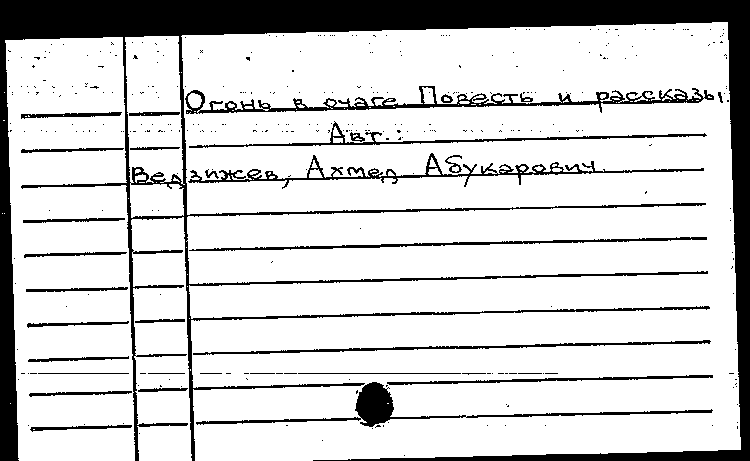 Огонь в очаге Повесть и рассказы.
Авт.:
Ведзижев, Ахмед Абукарович